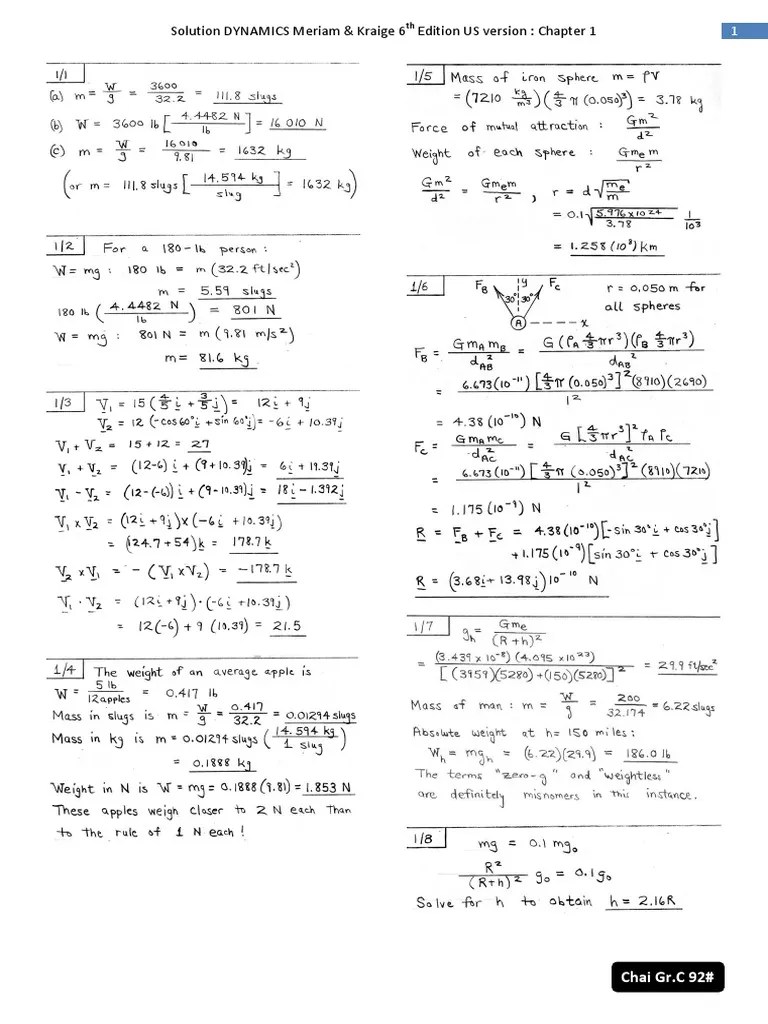 Solution DYNAMICS Meriam & Kraige 6th Edition US version : Chapter 1
1
1/1
(a) m = W/g = 3600/32.2 = 111.8 slugs
(b) W = 3600 lb [4.4482 N/lb] = 16 010 N
(c) m = W/g = 16010/9.81 = 1632 kg
(or m = 111.8 slugs [14.594 kg/slug] = 1632 kg)
1/2 For a 180-lb person :
W = mg : 180 lb = m (32.2 ft/sec²)
m = 5.59 slugs
180 lb (4.4482 N/lb) = 801 N
W = mg : 801 N = m (9.81 m/s²)
m = 81.6 kg
1/3 V₁ = 15 (4/5 i + 3/5 j) = 12i + 9j
V₂ = 12 (-cos60°i + sin 60°j) = -6i + 10.39j
V₁ + V₂ = 15 + 12 = 27
V₁ + V₂ = (12-6) i + (9 + 10.39)j = 6i + 19.39j
V₁ - V₂ = (12-(-6)) i + (9-10.39)j = 18i - 1.392j
V₁ x V₂ = (12i + 9j) x (-6i + 10.39j)
= (124.7 + 54) k = 178.7 k
V₂ x V₁ = - (V₁ x V₂) = -178.7 k
V₁ · V₂ = (12i + 9j) · (-6i + 10.39j)
= 12(-6) + 9 (10.39) = 21.5
1/4 The weight of an average apple is
W = 5 lb/12 apples = 0.417 lb
Mass in slugs is m = W/g = 0.417/32.2 = 0.01294 slugs
Mass in kg is m = 0.01294 slugs (14.594 kg/1 slug)
= 0.1888 kg
Weight in N is W = mg = 0.1888 (9.81) = 1.853 N
These apples weigh closer to 2 N each than
to the rule of 1 N each !
1/5 Mass of iron sphere m = ρV
= (7210 kg/m³) (4/3 π (0.050)³) = 3.78 kg
Force of mutual attraction : Gm²/d²
Weight of each sphere : Gmₑm/r²
Gm²/d² = Gmₑm/r² , r = d √(mₑ/m)
= 0.1 √(5.976x10²⁴/3.78) 1/10³
= 1.258 (10⁸) km
1/6 F_B y F_C r = 0.050 m for
30° 30° all spheres
A x
F_B = G m_A m_B/d_AB² = G (ρ_A 4/3 πr³)(ρ_B 4/3 πr³)/d_AB²
= 6.673(10⁻¹¹) [4/3 π (0.050)³]² (8910)(2690)/1²
= 4.38 (10⁻¹⁰) N
F_C = G m_A m_C/d_AC² = G [4/3 πr³]² ρ_A ρ_C/d_AC²
= 6.673 (10⁻¹¹) [4/3 π (0.050)³]² (8910) (7210)/1²
= 1.175 (10⁻⁹) N
R = F_B + F_C = 4.38 (10⁻¹⁰) [-sin 30°i + cos 30°j]
+ 1.175 (10⁻⁹) [sin 30°i + cos 30°j]
R = (3.68i + 13.98j) 10⁻¹⁰ N
1/7 g_h = Gmₑ/(R + h)²
= (3.439 x 10⁻⁸) (4.095 x10²³)/[(3959)(5280)+(150)(5280)]² = 29.9 ft/sec²
Mass of man : m = W/g = 200/32.174 = 6.22 slugs
Absolute weight at h = 150 miles :
W_h = mg_h = (6.22) (29.9) = 186.0 lb
The terms "zero-g" and "weightless"
are definitely misnomers in this instance.
1/8 mg = 0.1 mg₀
R²/(R+h)² g₀ = 0.1g₀
Solve for h to obtain h = 2.16R
Chai Gr.C 92#